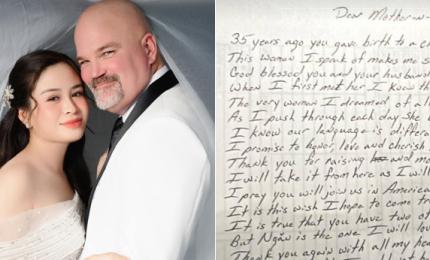 Dear Mother-in-
35 years ago you gave birth to a
This woman I speak of makes me
God blessed you and your husband
When I first met her I knew
The very woman I dreamed of
As I push through each day she
I know our language is
I promise to honor, love and cherish
Thank you for raising and
I will take it from here as I will
I pray you will join us in America
It is this wish I hope to come
It is true that you have two
But Ngân is the one I will
Thank you again with all my